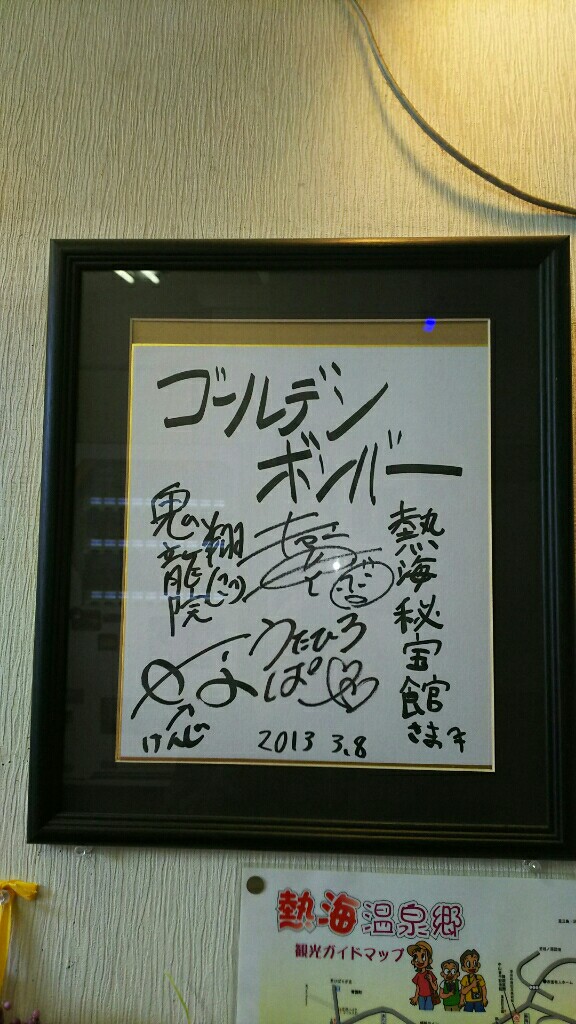 ゴールデン
ボンバー
熱海秘宝館
さま
鬼龍院
翔
うたひろ
ば
けんじ
2013 3.8
熱海温泉郷
観光ガイドマップ